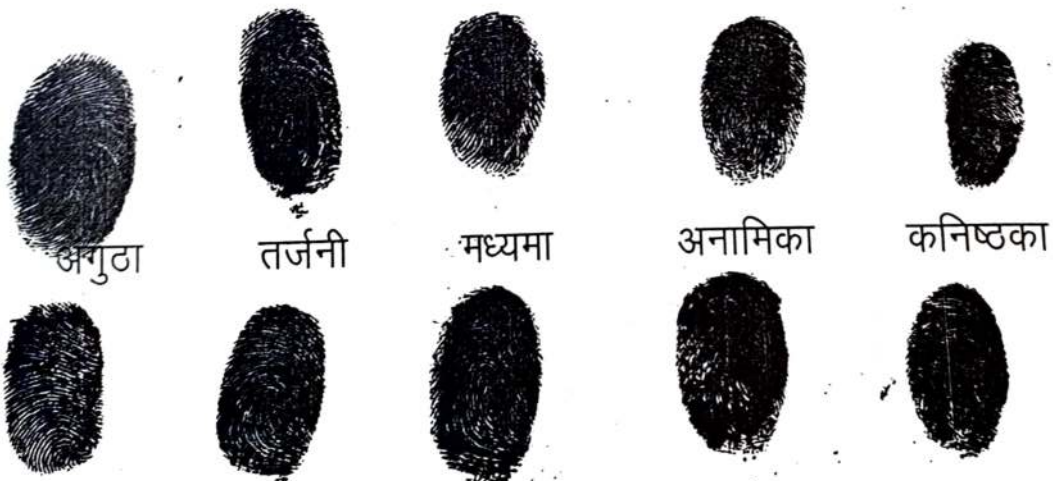 अगुठा तर्जनी मध्यमा अनामिका कनिष्ठका